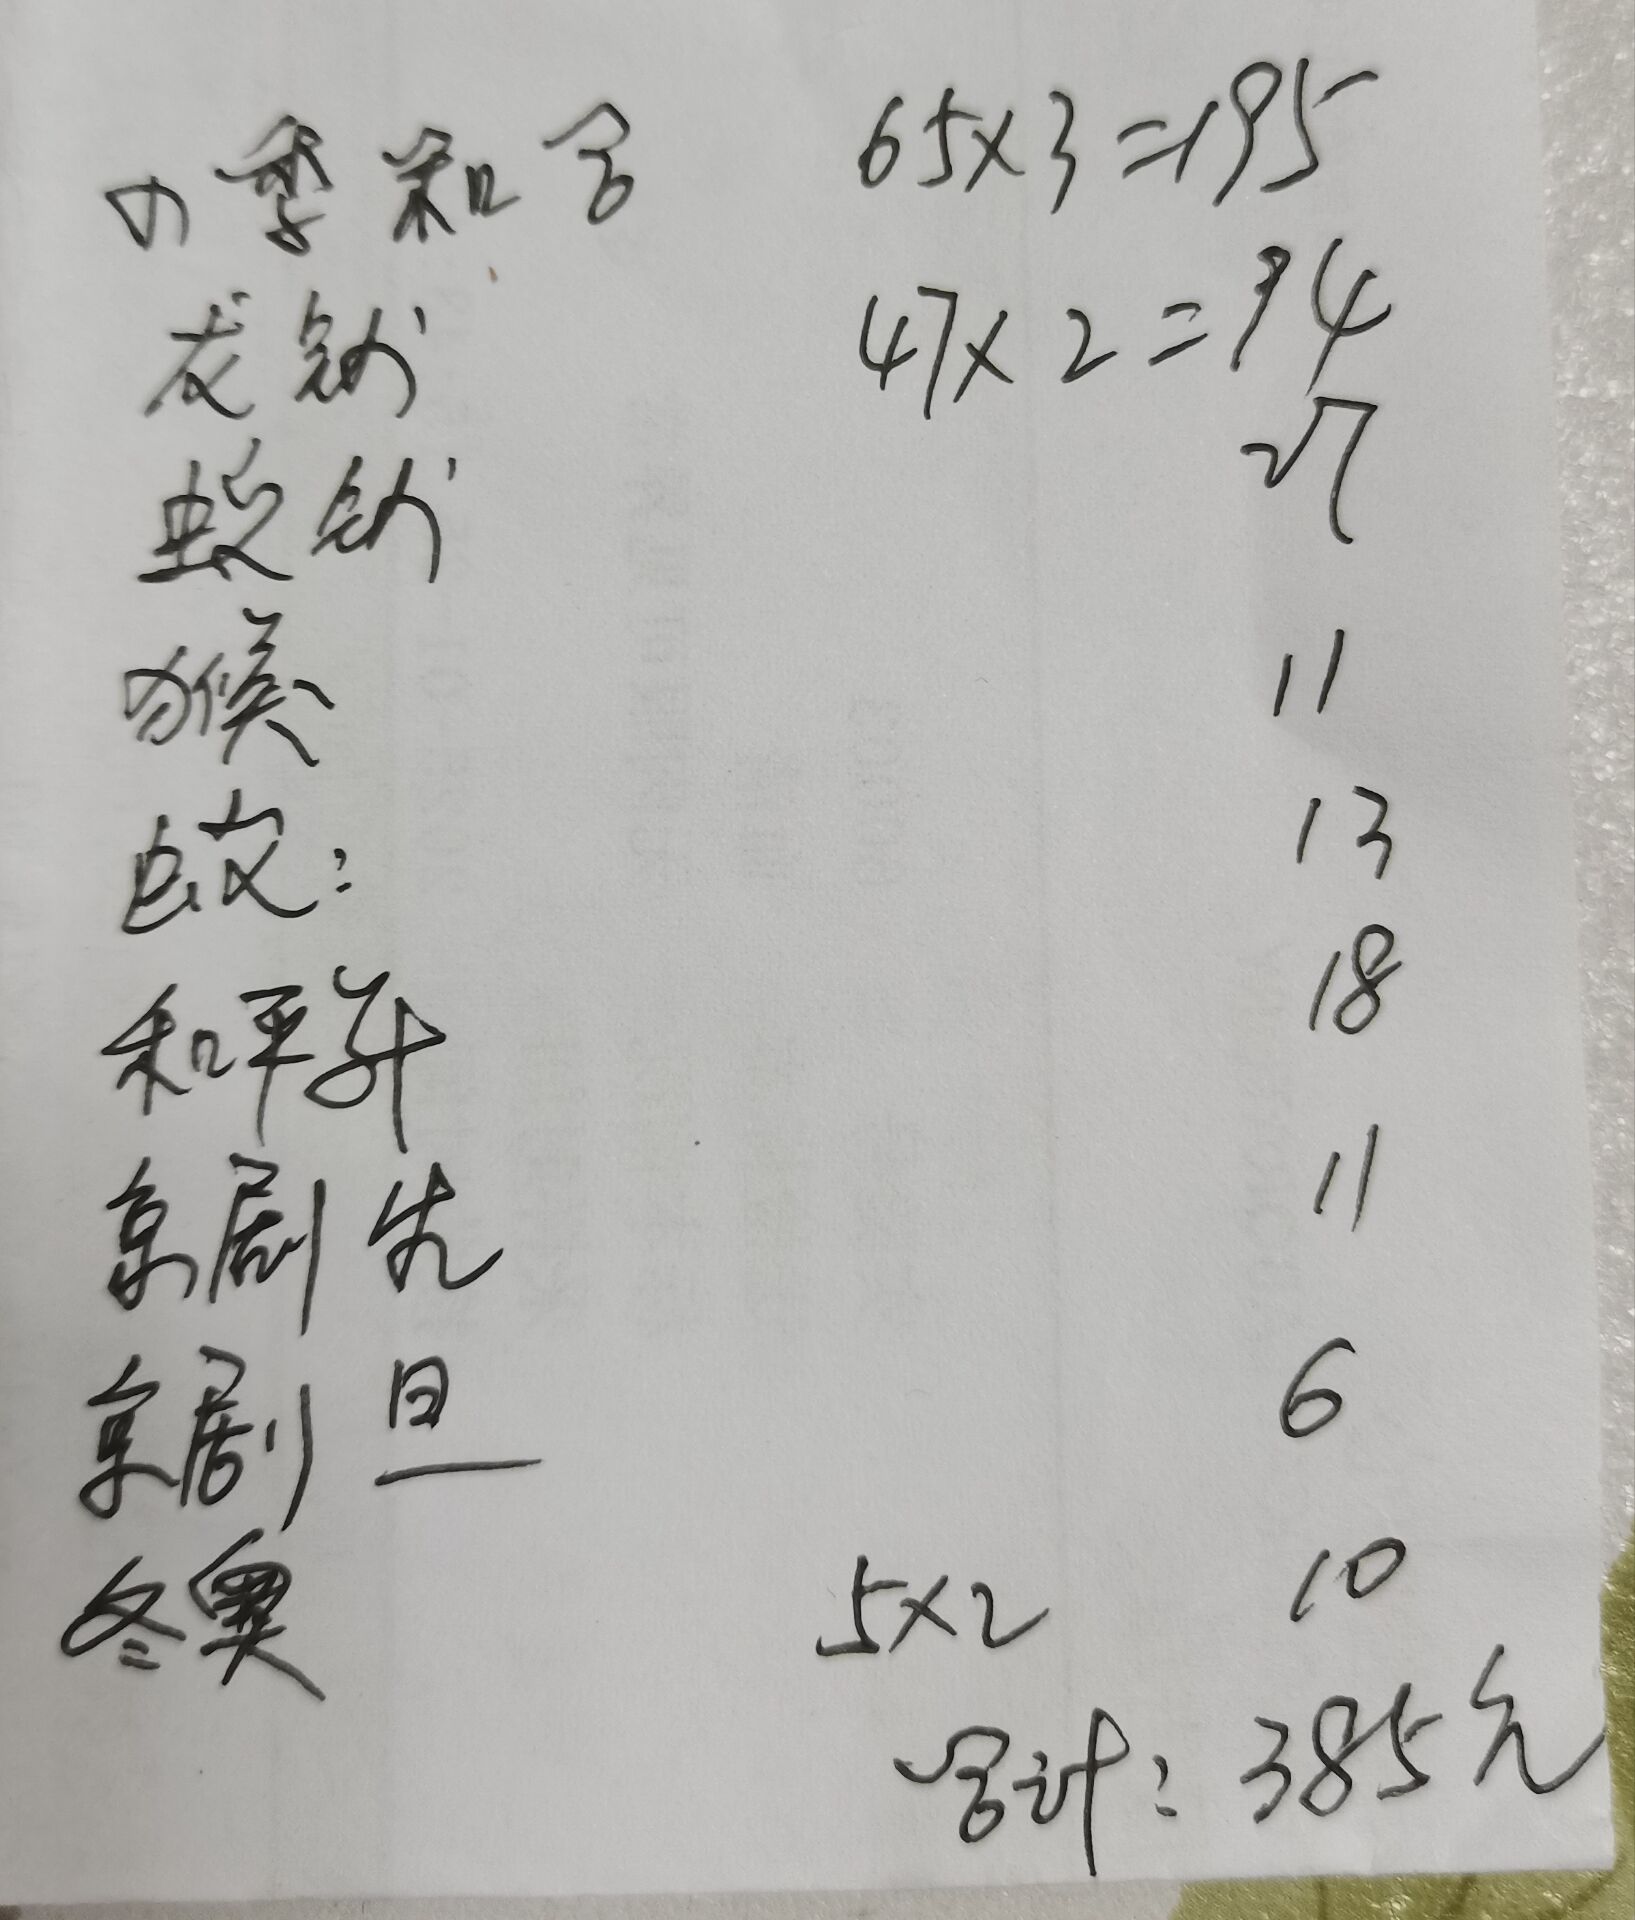 四季和合 65×3=195
龙钞 47×2=94
蛇钞 27
猴 11
蛇: 13
和平升 18
京剧 生 11
京剧 旦 6
冬奥 5×2 10
合计: 385元